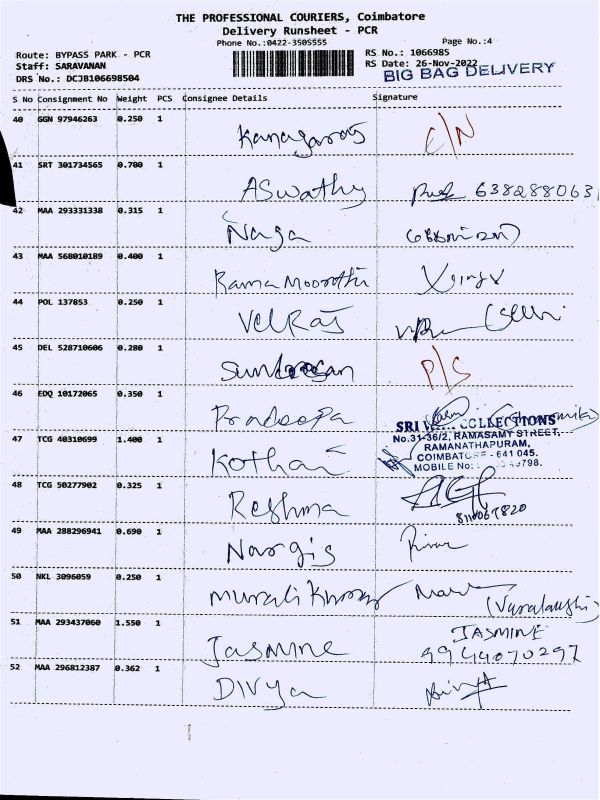 THE PROFESSIONAL COURIERS, Coimbatore
Delivery Runsheet - PCR
Phone No.:0422-3505555 Page No.:4
Route: BYPASS PARK - PCR RS No.: 1066985
Staff: SARAVANAN RS Date: 26-Nov-2022
DRS No.: DCJB106698504 BIG BAG DELIVERY
S No Consignment No Weight PCS Consignee Details Signature
40 GGN 97946263 0.250 1
Kanagaraj
41 SRT 301734565 0.700 1
ASwathy 638288063
42 MAA 293331338 0.315 1
Naga
43 MAA 568010189 0.400 1
Rama Moorthi
44 POL 137853 0.250 1
VelRaj
45 DEL 528710606 0.280 1
P/S
46 EDQ 10172065 0.350 1
Pradeepa
SRI COLLECTIONS
No.31-36/2, RAMASAMY STREET,
47 TCG 40310699 1.400 1
RAMANATHAPURAM,
COIMBATORE - 641 045.
Kothai MOBILE No:
48 TCG 50277902 0.325 1
Reshma 8110067820
49 MAA 288296941 0.690 1
Nargis
50 NKL 3096059 0.250 1
Murali Kumar
51 MAA 293437060 1.550 1
JASMINE
Jasmine 9944070297
52 MAA 296812387 0.362 1
Divya